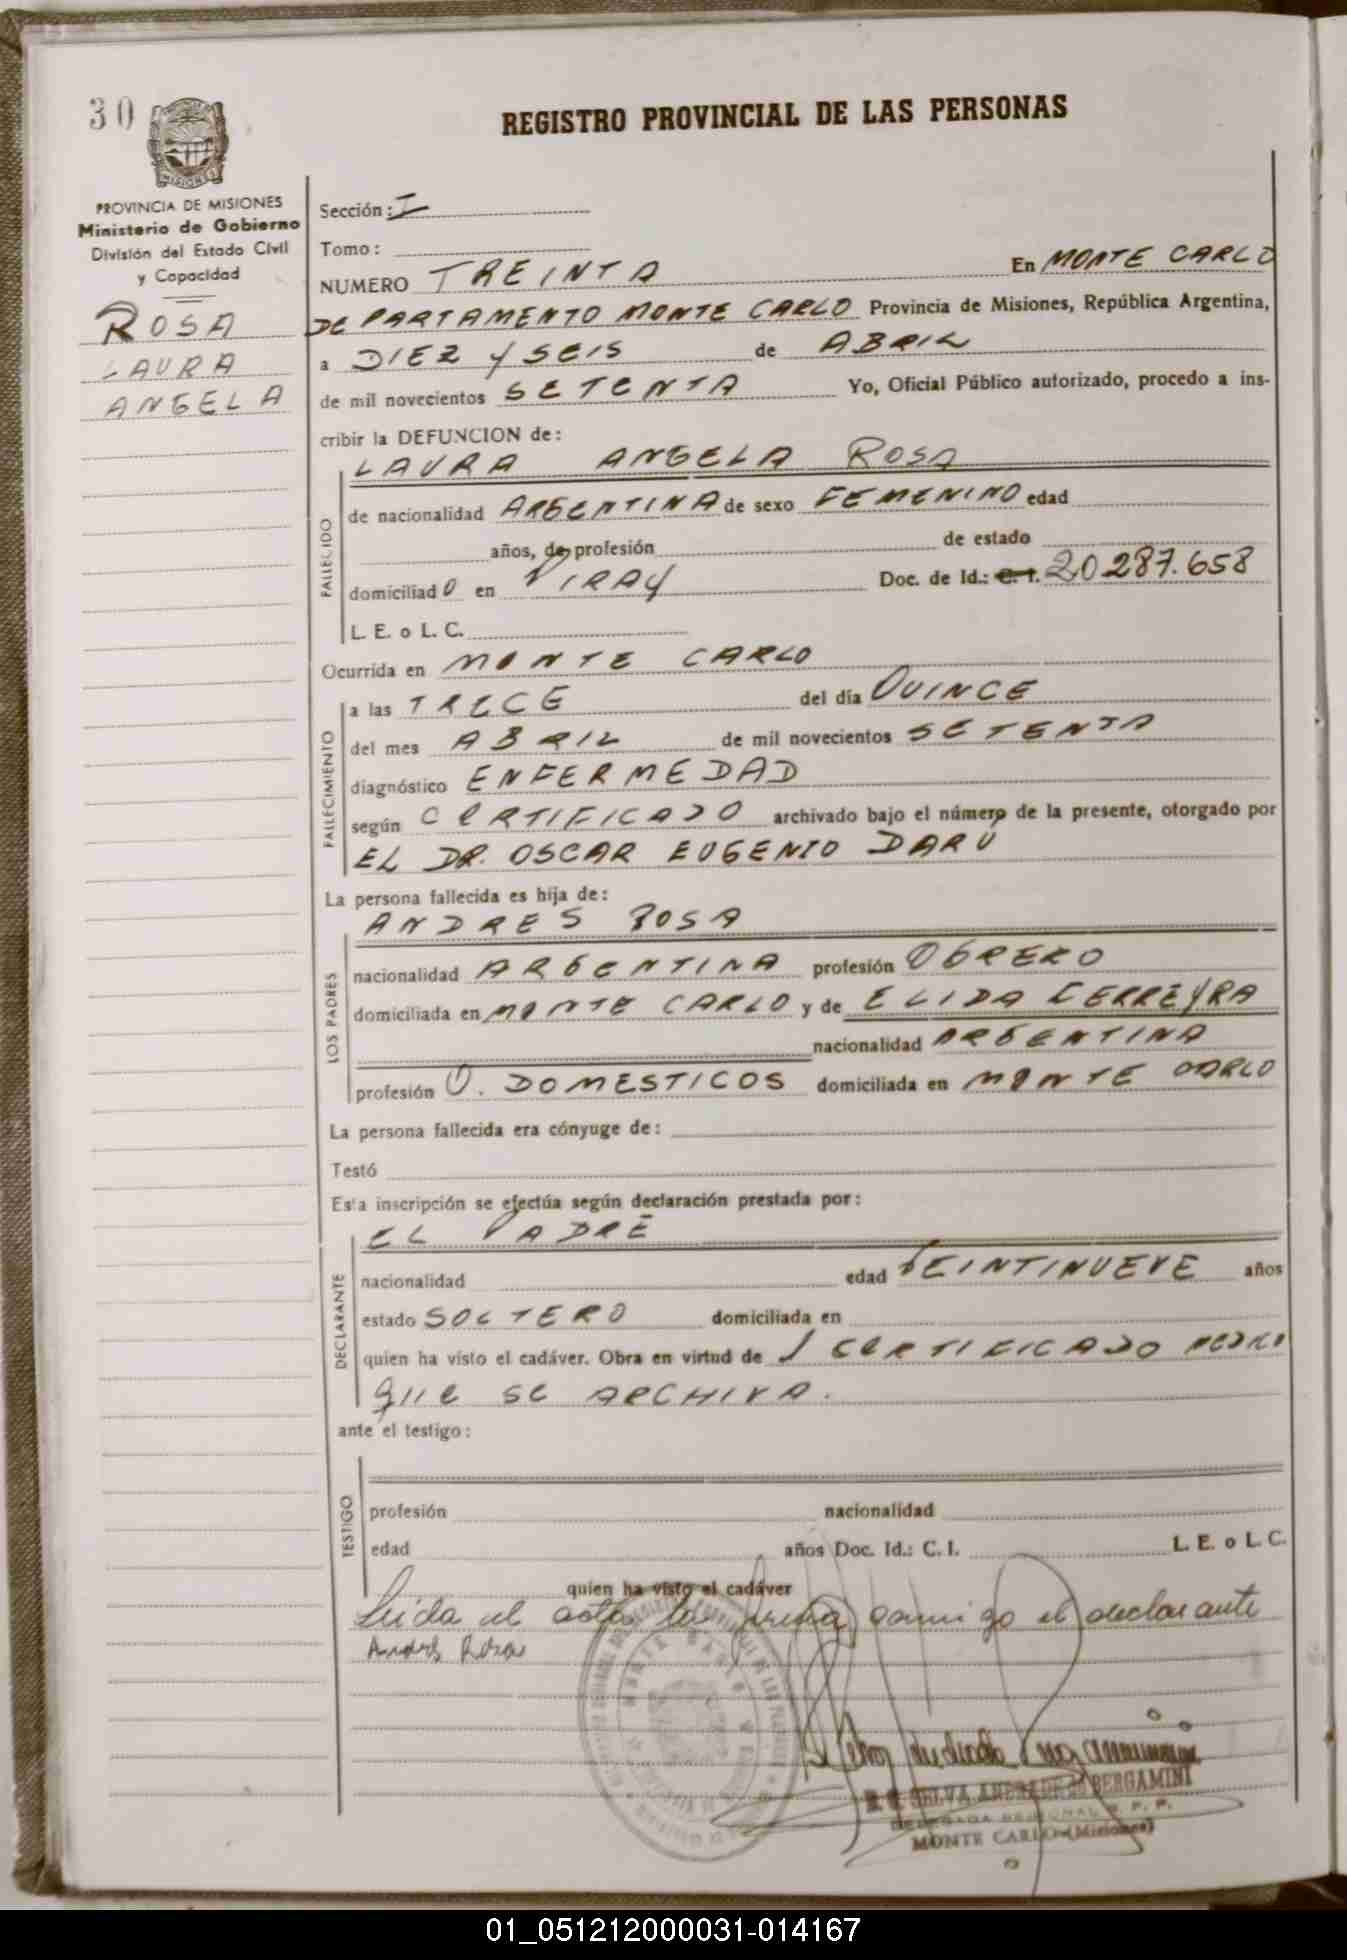 30
REGISTRO PROVINCIAL DE LAS PERSONAS
MISIONES
PROVINCIA DE MISIONES
Ministerio de Gobierno
División del Estado Civil
y Capacidad
ROSA
LAURA
ANGELA
Sección: I
Tomo:
NUMERO TREINTA En MONTE CARLO
DEPARTAMENTO MONTE CARLO Provincia de Misiones, República Argentina,
a DIEZ Y SEIS de ABRIL
de mil novecientos SETENTA Yo, Oficial Público autorizado, procedo a ins-
cribir la DEFUNCION de:
LAURA ANGELA ROSA
FALLECIDO
de nacionalidad ARGENTINA de sexo FEMENINO edad
años, de profesión de estado
domiciliado en PIRAY Doc. de Id.: C. I. 20287.658
L. E. o L. C.
Ocurrida en MONTE CARLO
FALLECIMIENTO
a las TRECE del día QUINCE
del mes ABRIL de mil novecientos SETENTA
diagnóstico ENFERMEDAD
según CERTIFICADO archivado bajo el número de la presente, otorgado por
EL DR. OSCAR EUGENIO DARÚ
La persona fallecida es hija de:
ANDRES ROSA
LOS PADRES
nacionalidad ARGENTINA profesión OBRERO
domiciliada en MONTE CARLO y de ELIDA FERREYRA
nacionalidad ARGENTINA
profesión Q. DOMESTICOS domiciliada en MONTE CARLO
La persona fallecida era cónyuge de:
Testó
Esta inscripción se efectúa según declaración prestada por:
EL PADRE
DECLARANTE
nacionalidad edad VEINTINUEVE años
estado SOLTERO domiciliada en
quien ha visto el cadáver. Obra en virtud de 1 CERTIFICADO
QUE SE ARCHIVA.
ante el testigo:
TESTIGO
profesión nacionalidad
edad años Doc. Id.: C. I. L. E. o L. C.
quien ha visto el cadáver
Leída el acta la firma conmigo el declarante
Andrés Rosa
SELVA ANDRADE de BERGAMINI
DELEGADA REGIONAL R. P. P.
MONTE CARLO (Misiones)
01_051212000031-014167